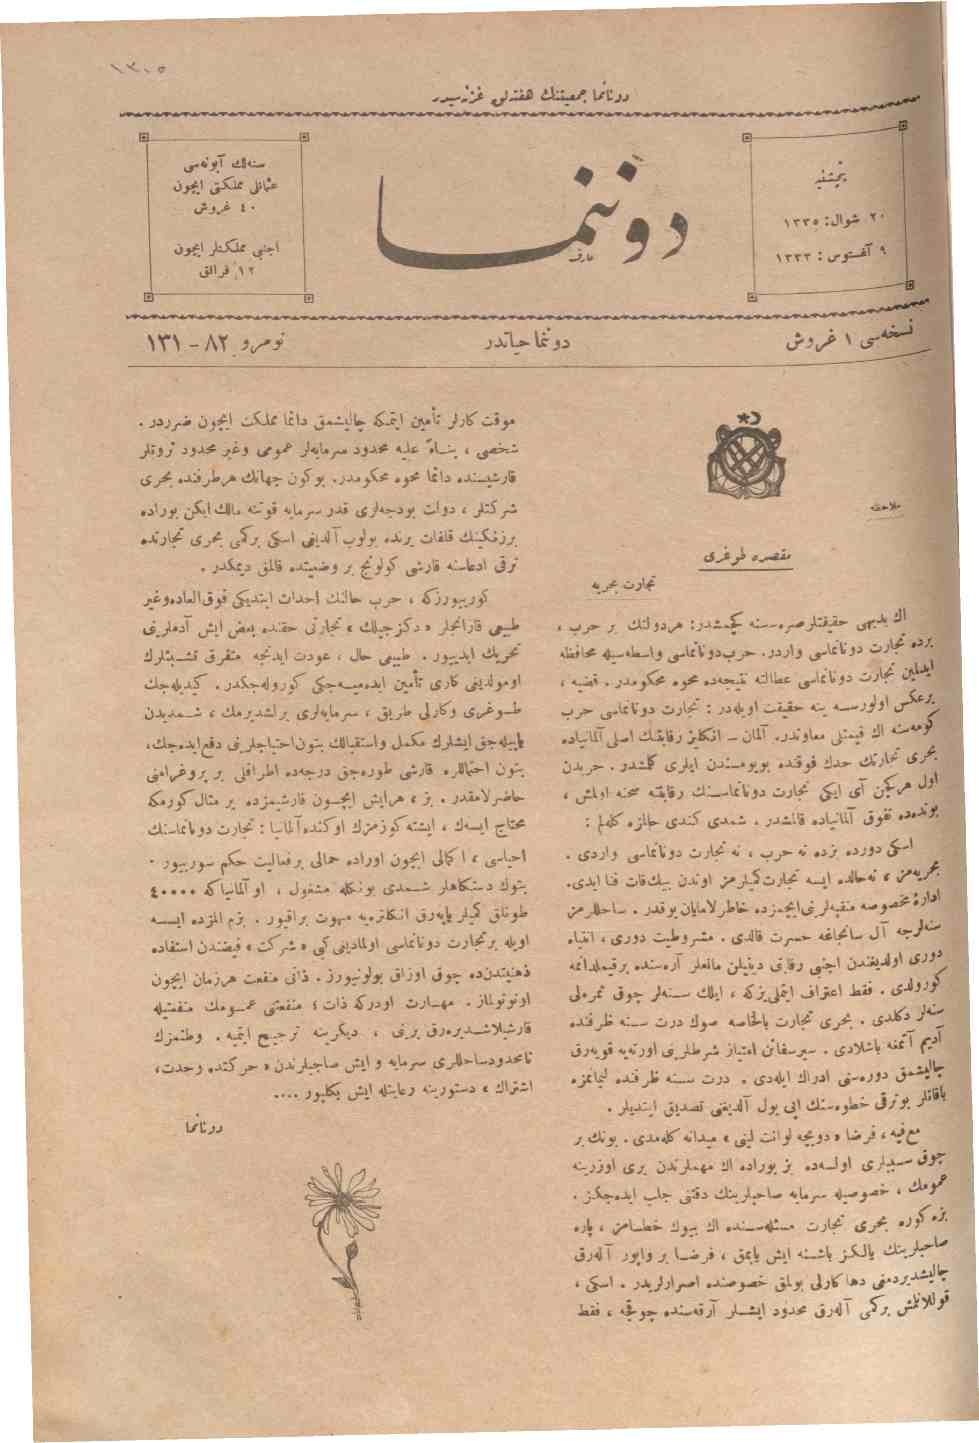 ١٣٠٥
دونانما جمعيتنك هفته‌لق غزته‌سيدر
پنجشنبه
٢٠ شوال: ١٣٣٥
٩ آغستوس : ١٣٣٣
دوننما
عارف
سنه‌لك آبونه‌سى
عثمانلى مملكتى ايچون
٤٠ غروش
اجنبى مملكتلر ايچون
١٢ فرانق
نسخه‌سى ١ غروش
دوننما حياتدر
نومرو ٨٢ – ١٣١
ملاحظه
مقصده طوغرى
تجارت بحريه
اك بديهى حقيقتلر صره‌سنه كچمشدر: هر دولتك بر حرب ،
برده تجارت دونانماسى واردر. حرب دونانماسى واسطه‌سيله محافظه
ايديلن تجارت دونانماسى عطالته نتيجه‌ده محوه محكومدر . قضيه ،
برعكس اولورسه ينه حقيقت اويله‌در : تجارت دونانماسى حرب
كومه‌سنه اك قيمتلى معاوندر. آلمان – انكليز رقابتك اصلى آلمانياده
بحرى تجارتك حدك فوقنده بويومسندن ايلرى كلمشدر. حربدن
اول هركچن آى ايكى تجارت دونانماسنك رقابته صحنه اولمش ،
بونده‌ده تفوق آلمانياده قالمشدر . شمدى كندى حالمزه كله‌لم :
اسكى دورده بزده نه حرب ، نه تجارت دونانماسى واردى .
بحريه‌مز ، نه‌حالده ايسه تجارت كميلرمز اوندن بيك قات فنا ايدى.
ادارهٔ مخصوصه منقبه‌لرينى ايچمزده خاطرلامايان يوقدر . ساحللرمز
سنه‌لرجه آل سانجاغه حسرت قالدى . مشروطيت دورى ، انتباه
دورى اولديغندن اجنبى رقابتى دينيلن مانعلر آره‌سنده برقيملدانمه
كورولدى . فقط اعتراف ايتملى‌يزكه ، ايلك سنه‌لر چوق ثمره‌لى
سنه‌لر دكلدى . بحرى تجارت بالخاصه صوك درت سنه ظرفنده
آديم آتمغه باشلادى . سيرسفائن امتياز شرطلرينى اورته‌يه قويه‌رق
چاليشمق دوره‌سنى ادراك ايله‌دى . درت سنه ظرفنده ليمانمزه
باقانلر بو ترقى خطوه‌سنك ايى يول آلديغنى تصديق ايتديلر .
مع‌فيه ، فرضا « دويچه لوانت لينى » ميدانه كله‌مدى . بونك بر
چوق سببلرى اولسه‌ده بز بوراده اك مهملرندن برى اوزرينه
عمومك ، خصوصيله سرمايه صاحبلرينك دقتنى جلب ايده‌جكز .
بزه كوره بحرى تجارت مسئله‌سنده اك بيوك خطامز ، پاره
صاحبلرينك يالكز باشنه ايش ياپمق ، فرضا بر واپور آله‌رق
چاليشديردمغى دها كارلى بولمق خصوصنده اصرارلريدر . اسكى ،
قوللانلمش بركمى آله‌رق محدود ايشلر آرقه‌سنده چوقجه ، فقط
موقت كارلر تأمين ايتمكه چاليشمق دائما مملكت ايچون ضرردر .
شخصى ، بناءً عليه محدود سرمايه‌لر عمومى وغير محدود ثروتلر
قارشيسنده دائما محوه محكومدر. بوكون جهانك هر طرفنده بحرى
شركتلر ، دولت بودجه‌لرى قدر سرمايه قوتنه مالك ايكن بوراده
برزنكينك قلفات يرنده بولوب آلديغى اسكى بركمى بحرى تجارتده
ترقى ادعاسنه قارشى كولونج بر وضعيتده قالمق ديمكدر .
كورييورزكه ، حرب حالنك احداث ايتديكى فوق‌العاده‌وغير
طبيعى قازانجلر « دكزجيلك » تجارتى حقنده بعض ايش آدملرينى
تحريك ايدييور . طبيعى حال ، عودت ايدنجه متفرق تشبثلرك
اومولدينى كارى تأمين ايده‌ميه‌جكى كوروله‌جكدر. كيديله‌جك
طوغرى وكارلى طريق ، سرمايه‌لرى برلشديرمك ، شمديدن
ياپيله‌جق ايشلرك مكمل واستقبالك بتون احتياجلرينى دفع ايده‌جك،
بتون احتماللره قارشى طوره‌جق درجه‌ده اطرافلى بر پروغرامنى
حاضرلامقدر . بز ، هرايش ايچون قارشيمزده بر مثال كورمكه
محتاج ايسه‌ك ، ايشته كوزمزك اوكنده آلمانيا : تجارت دونانماسنك
احياسى ، اكمالى ايچون اوراده حمالى برفعاليت حكم سورييور .
بتون دستكاهلر شمدى بونكله مشغول ، او آلمانياكه ٤٠٠٠٠
طونلق كميلر ياپه‌رق انكلتره‌يه مبهوت براقيور . بزم المزده ايسه
اويله برتجارت دونانماسى اولمادينى كبى « شركت » فيضندن استفاده
ذهنيتندن‌ده چوق اوزاق بولونيورز . ذاتى منفعت هرزمان ايچون
اونوتولماز . مهارت اودركه ذات ، منفعتنى عمومك منفعتيله
قارشيلاشديره‌رق برينى ، ديكرينه ترجيح ايتميه . وطنمزك
نامحدودساحللرى سرمايه و ايش صاحبلرندن « حركتده وحدت،
اشتراك » دستورينه رعايتله ايش بكليور ....
دونانما